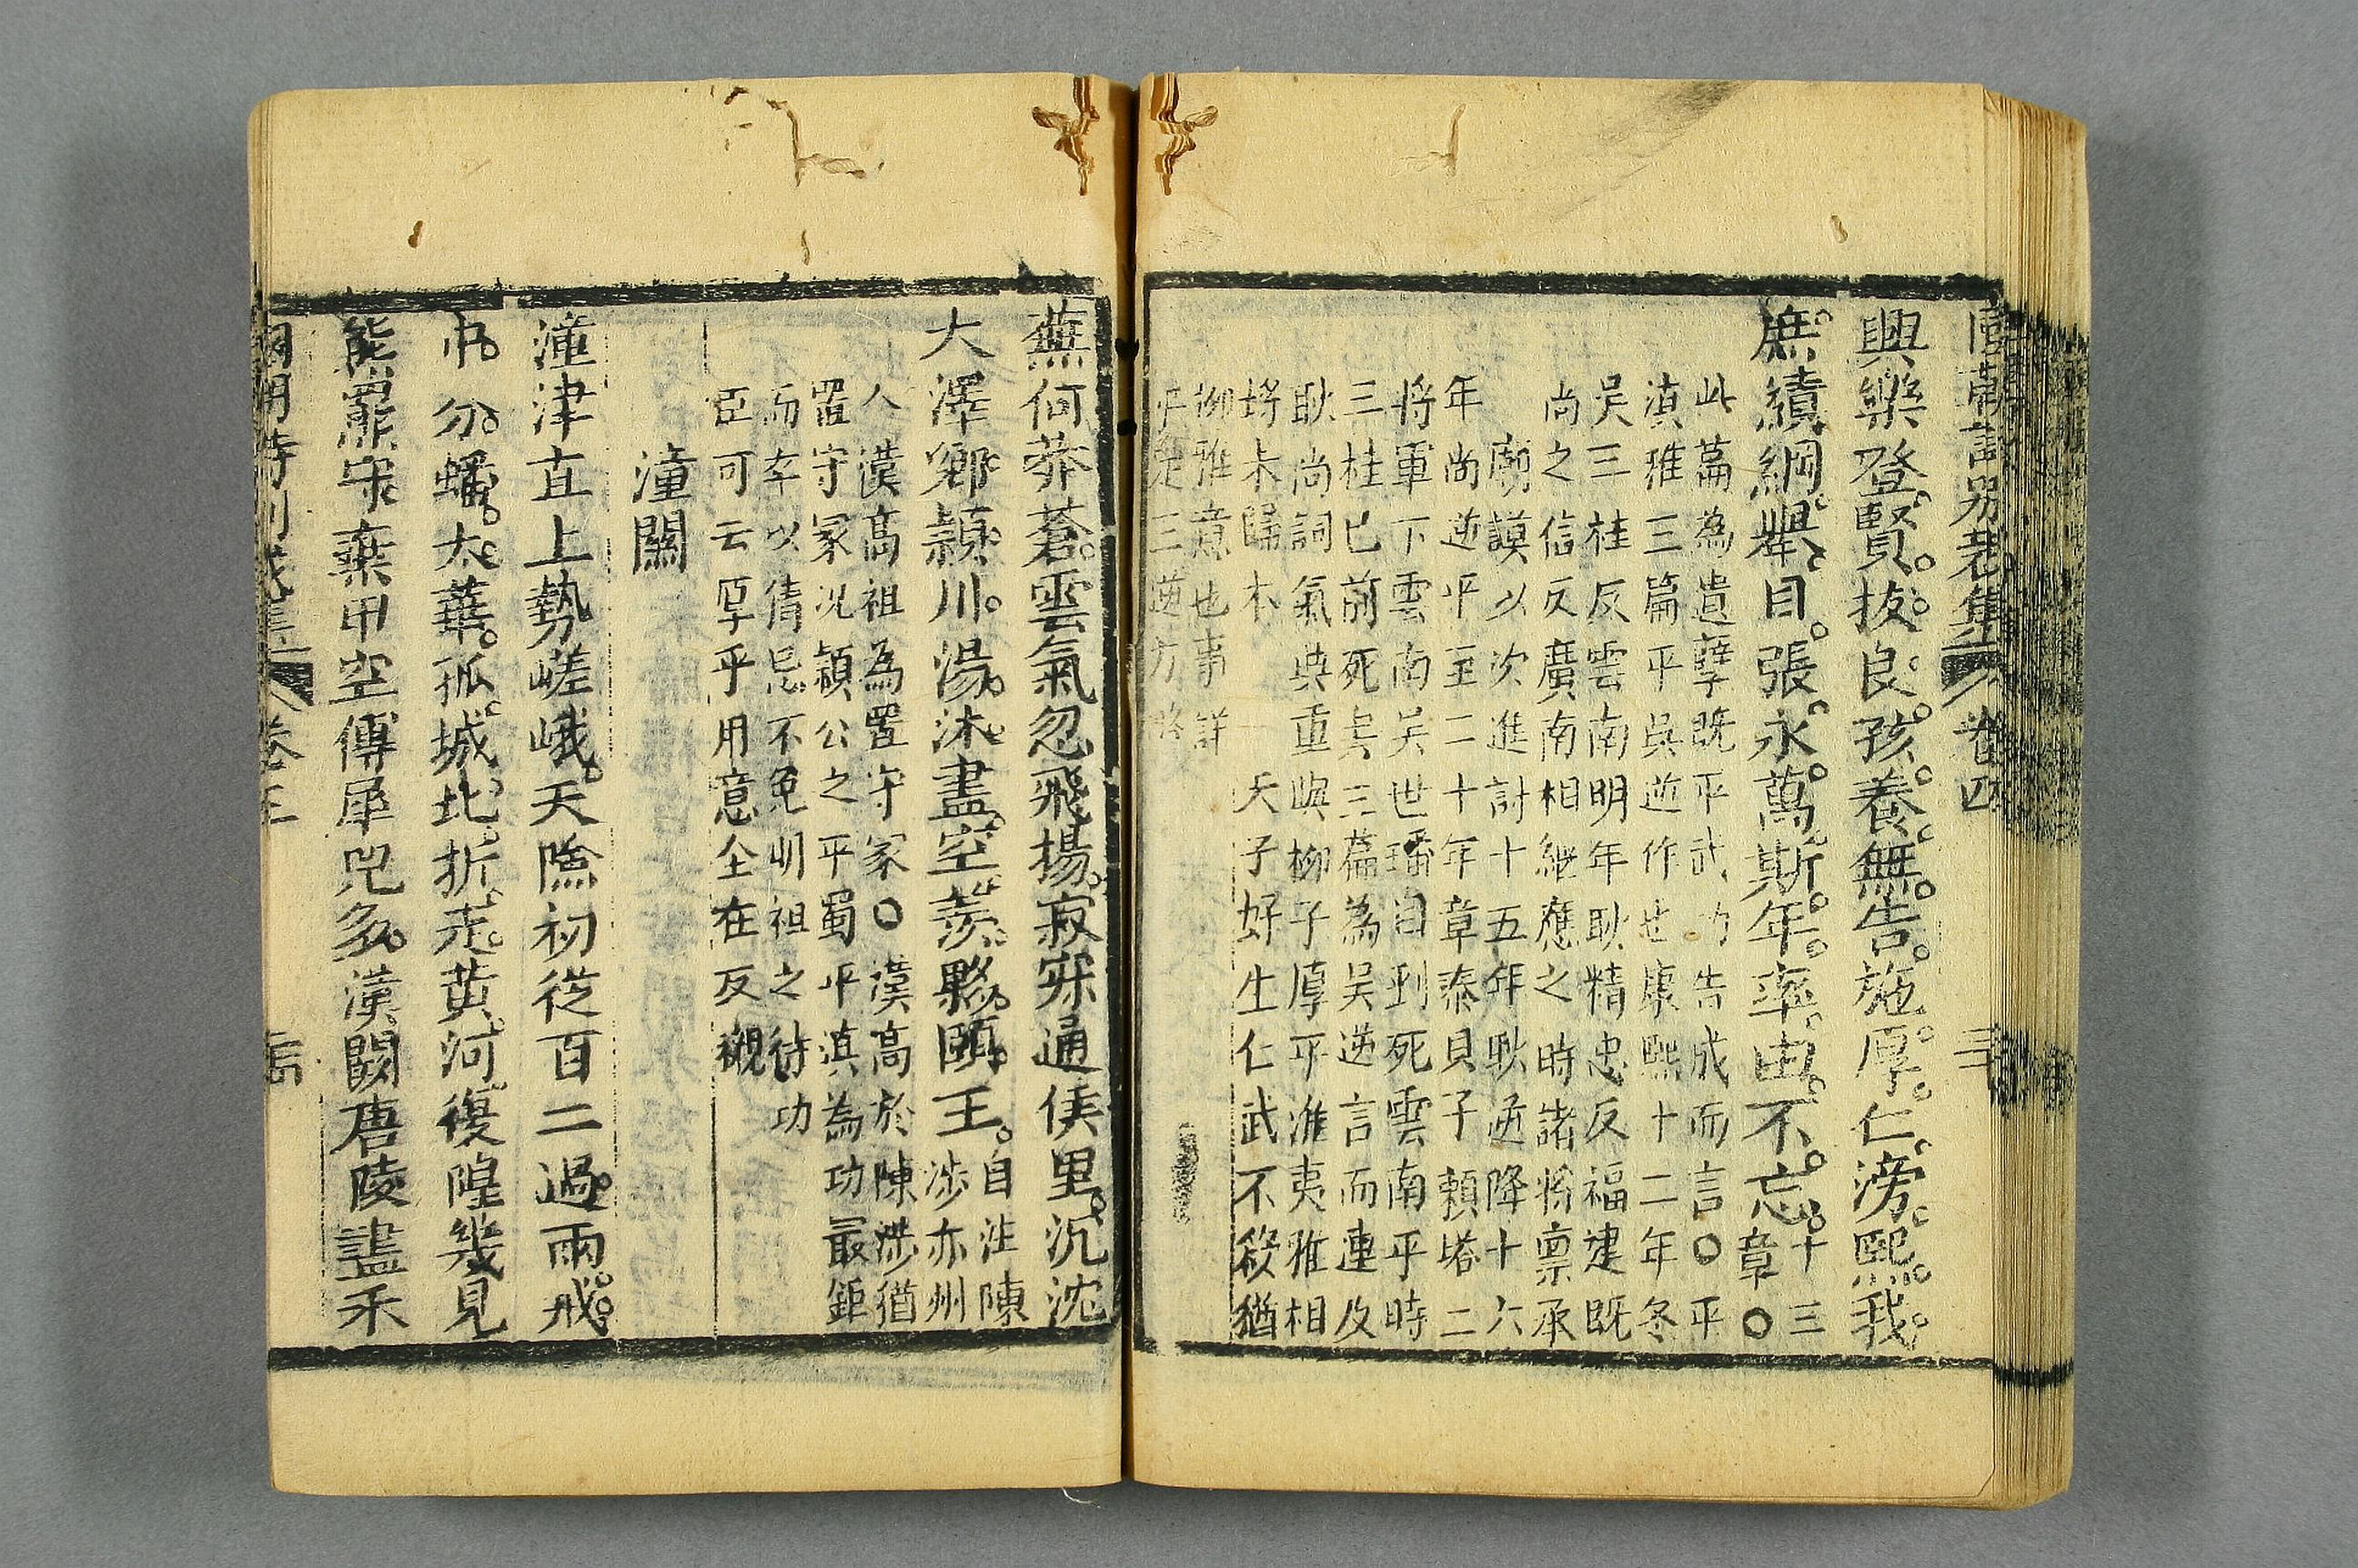 卷四
興樂登賢拔良孩養無告施厚仁滂熙我
庶績綱舉目張永萬斯年率由不忘十三章○
此篇為遺孽既平武功告成而言○平
滇雅三篇平吳逆作也康熙十二年冬
吳三桂反雲南明年耿精忠反福建既
尚之信反廣南相繼應之時諸將禀承
廟謨以次進討十五年耿逆降十六
年尚逆平至二十年章泰貝子賴塔二
將軍下雲南吳世璠自刭死雲南平時
三桂已前死矣三篇為吴逆言而連及
耿尚詞氣典重與柳子厚平淮夷雅相
埒末歸本 天子好生仁武不殺猶
柳雅意也事詳
平定三逆方略
蕪何莽蒼雲氣忽飛揚寂寞通侯里沉沈
大澤鄉潁川湯沐盡空羨夥頤王自注陳涉亦州
人漢高祖為置守冢○漢高於陳涉猶
置守冢况潁公之平蜀平滇為功最鉅
而卒以猜忌不免明祖之待功
臣可云厚乎用意全在反襯
潼關
潼津直上勢嵯峨天險初從百二過兩戒
中分蟠太華孤城北折走黄河復隍幾見
能羆守棄甲空傳犀兕多漢闕唐陵盡禾
國朝詩別裁集 卷三